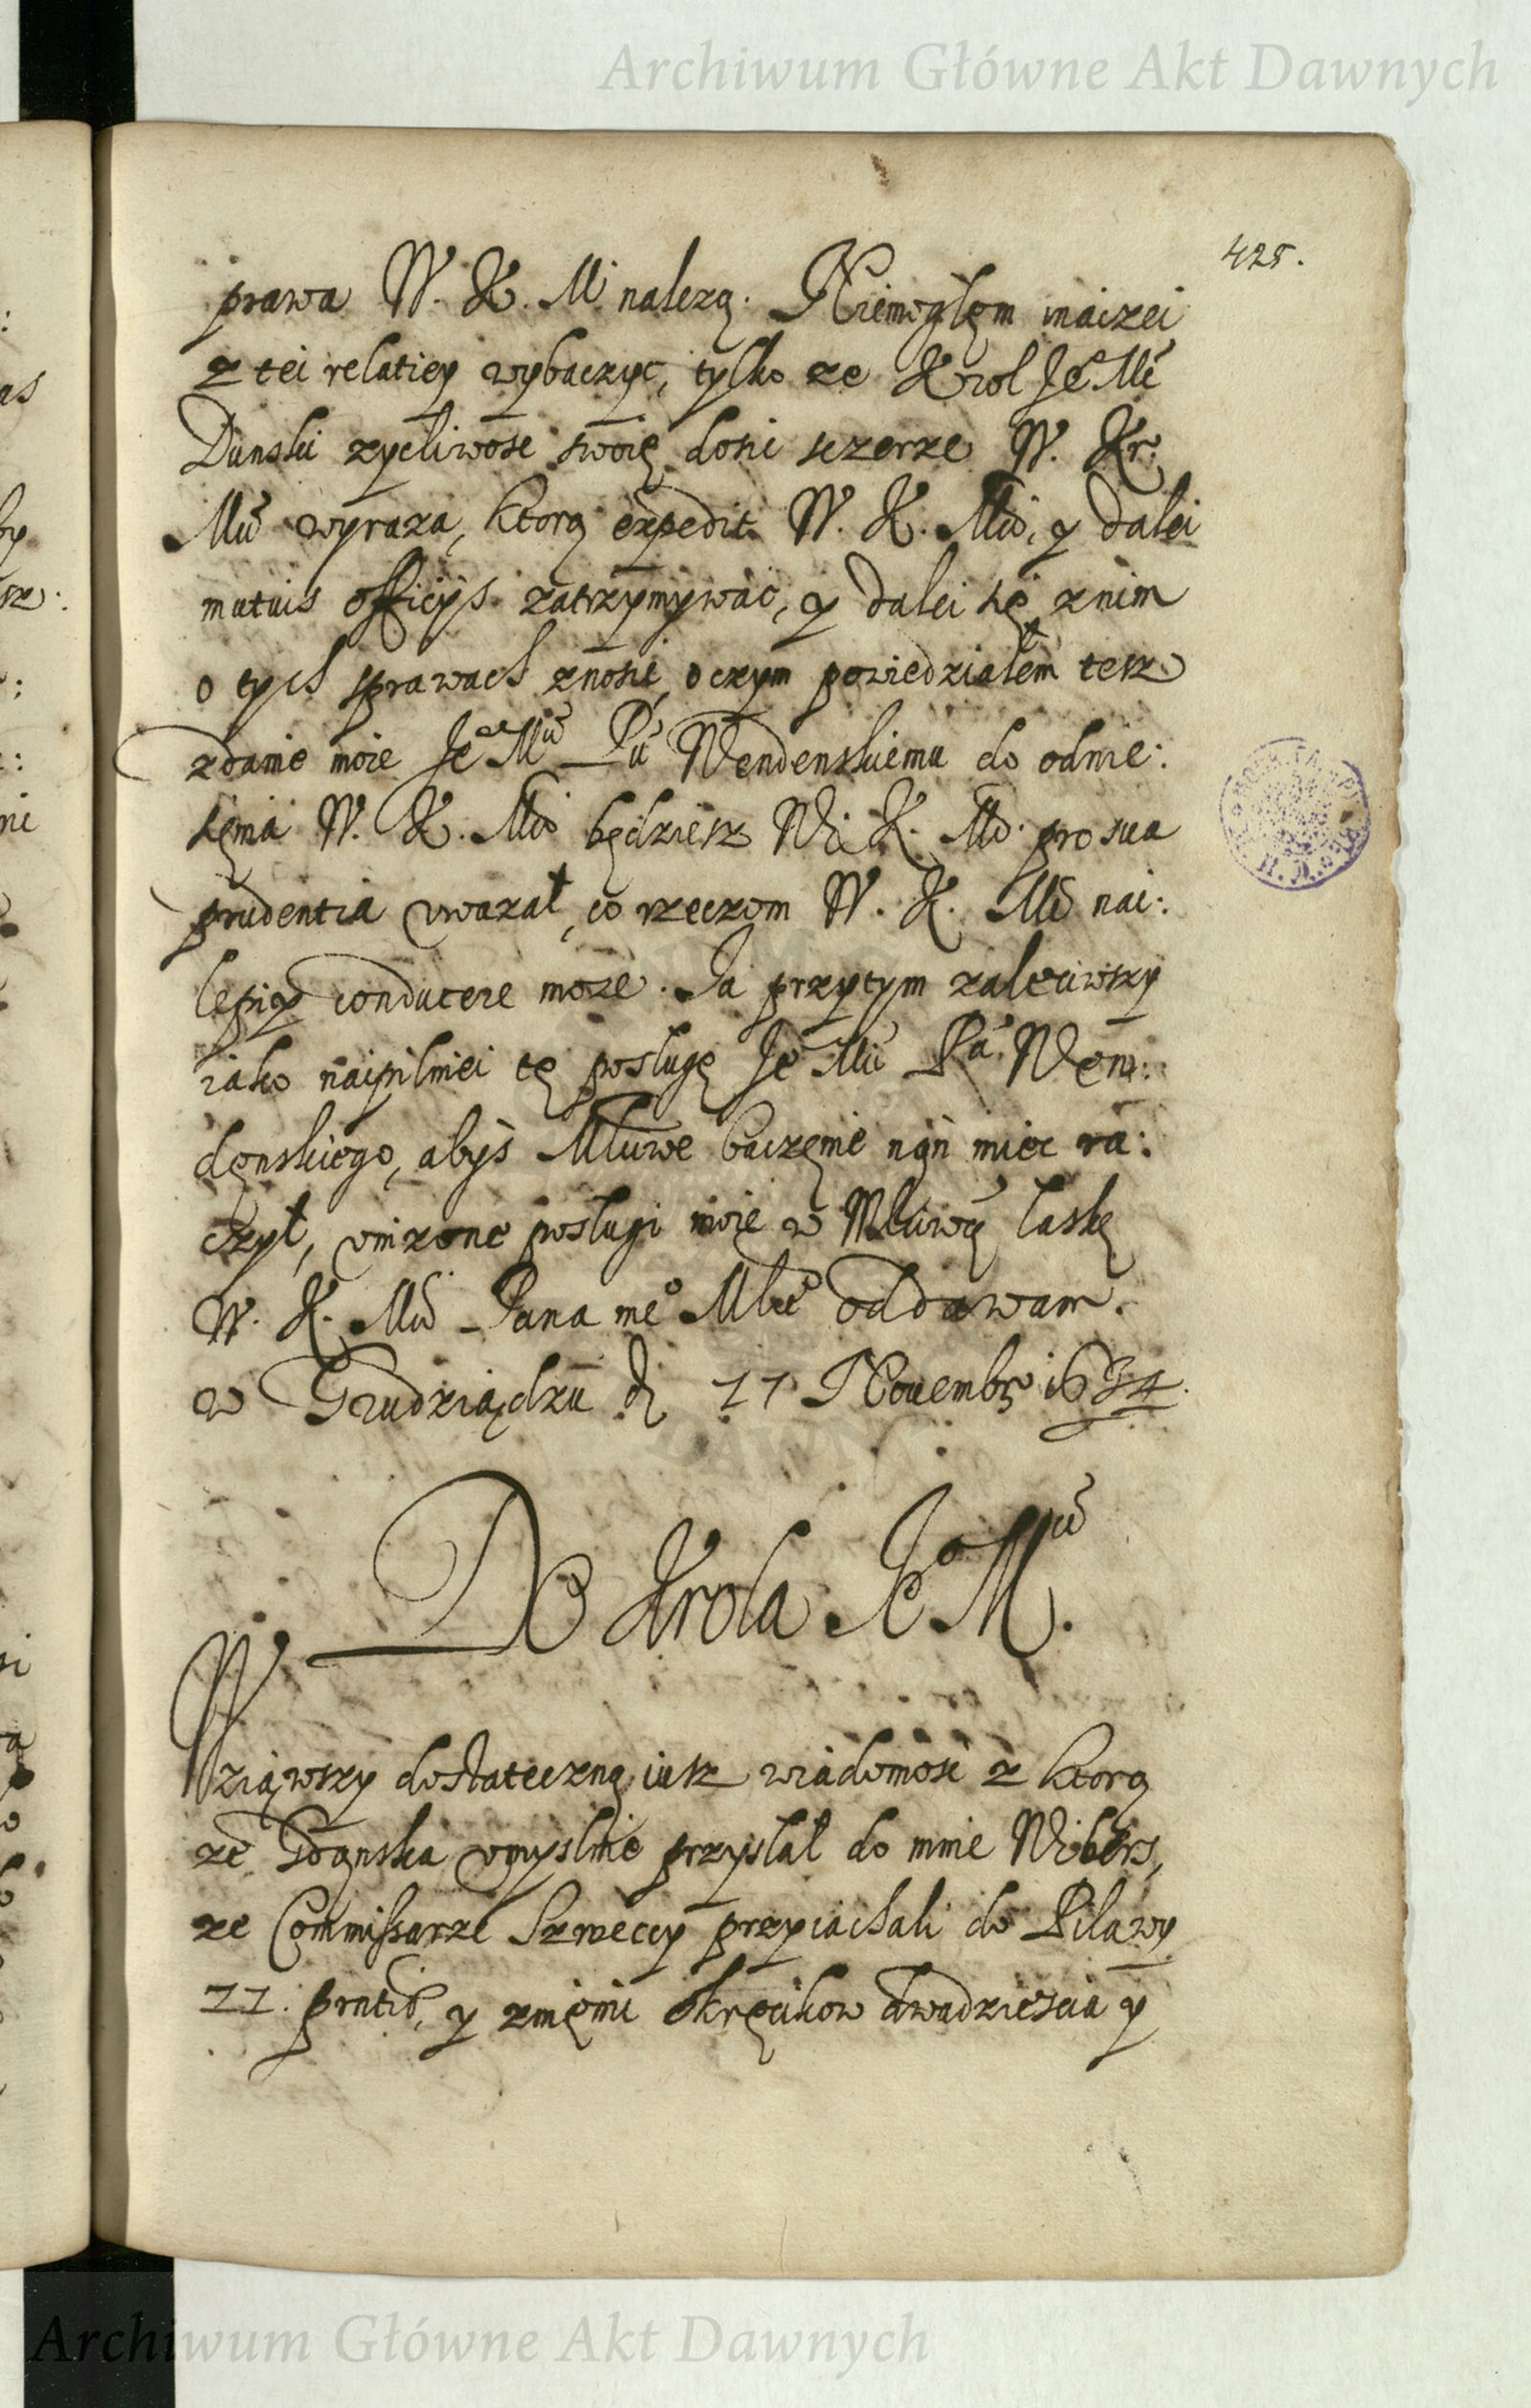 Archiwum Główne Akt Dawnych
425.
prawa W. K. M nalezą. Niemogłem inaczei
z tei relatiey wybaczyc, tylko ze Krol Je Mć
Dunski zycliwosc swoię dosic sczerze W. Kr:
Mci wyraza, ktorą expedit W. K. Mci, y dalei
mutuis officijs zatrzymywac, y dalei się znim
o tych sprawach znosic, oczym powiedziałem tesz
zdanie moie Je° Mci Pu Wendenskiemu do odnie:
sięnia W. K. Mci będziesz W. K. Mc. pro sua
prudentia uwazał, co rzeczom W. K. Mci nai:
lepiey conducere moze. Ja przytym zaleciwszy
iako naipilniei tę posługę Je Mci Pa Wen:
dęnskiego, abys Młciwe baczęnie nąn miec ra:
czył, unizone posługi moie w Młciwą łaskę
W. K. Mci Pana me° Młe° oddawam.
w Grudziądzu d. 11 Novembr 1634.
Do Krola Je° Mci.
Wziąwszy dostateczną iusz wiadomosc z ktorą
ze Gdąnska umyslnie przysłał do mnie Wibers,
ze Commissarze Szweccy przyiachali do Pilawy
11. prntis, y znięmi okręcikow dwadziescia y
Archiwum Główne Akt Dawnych